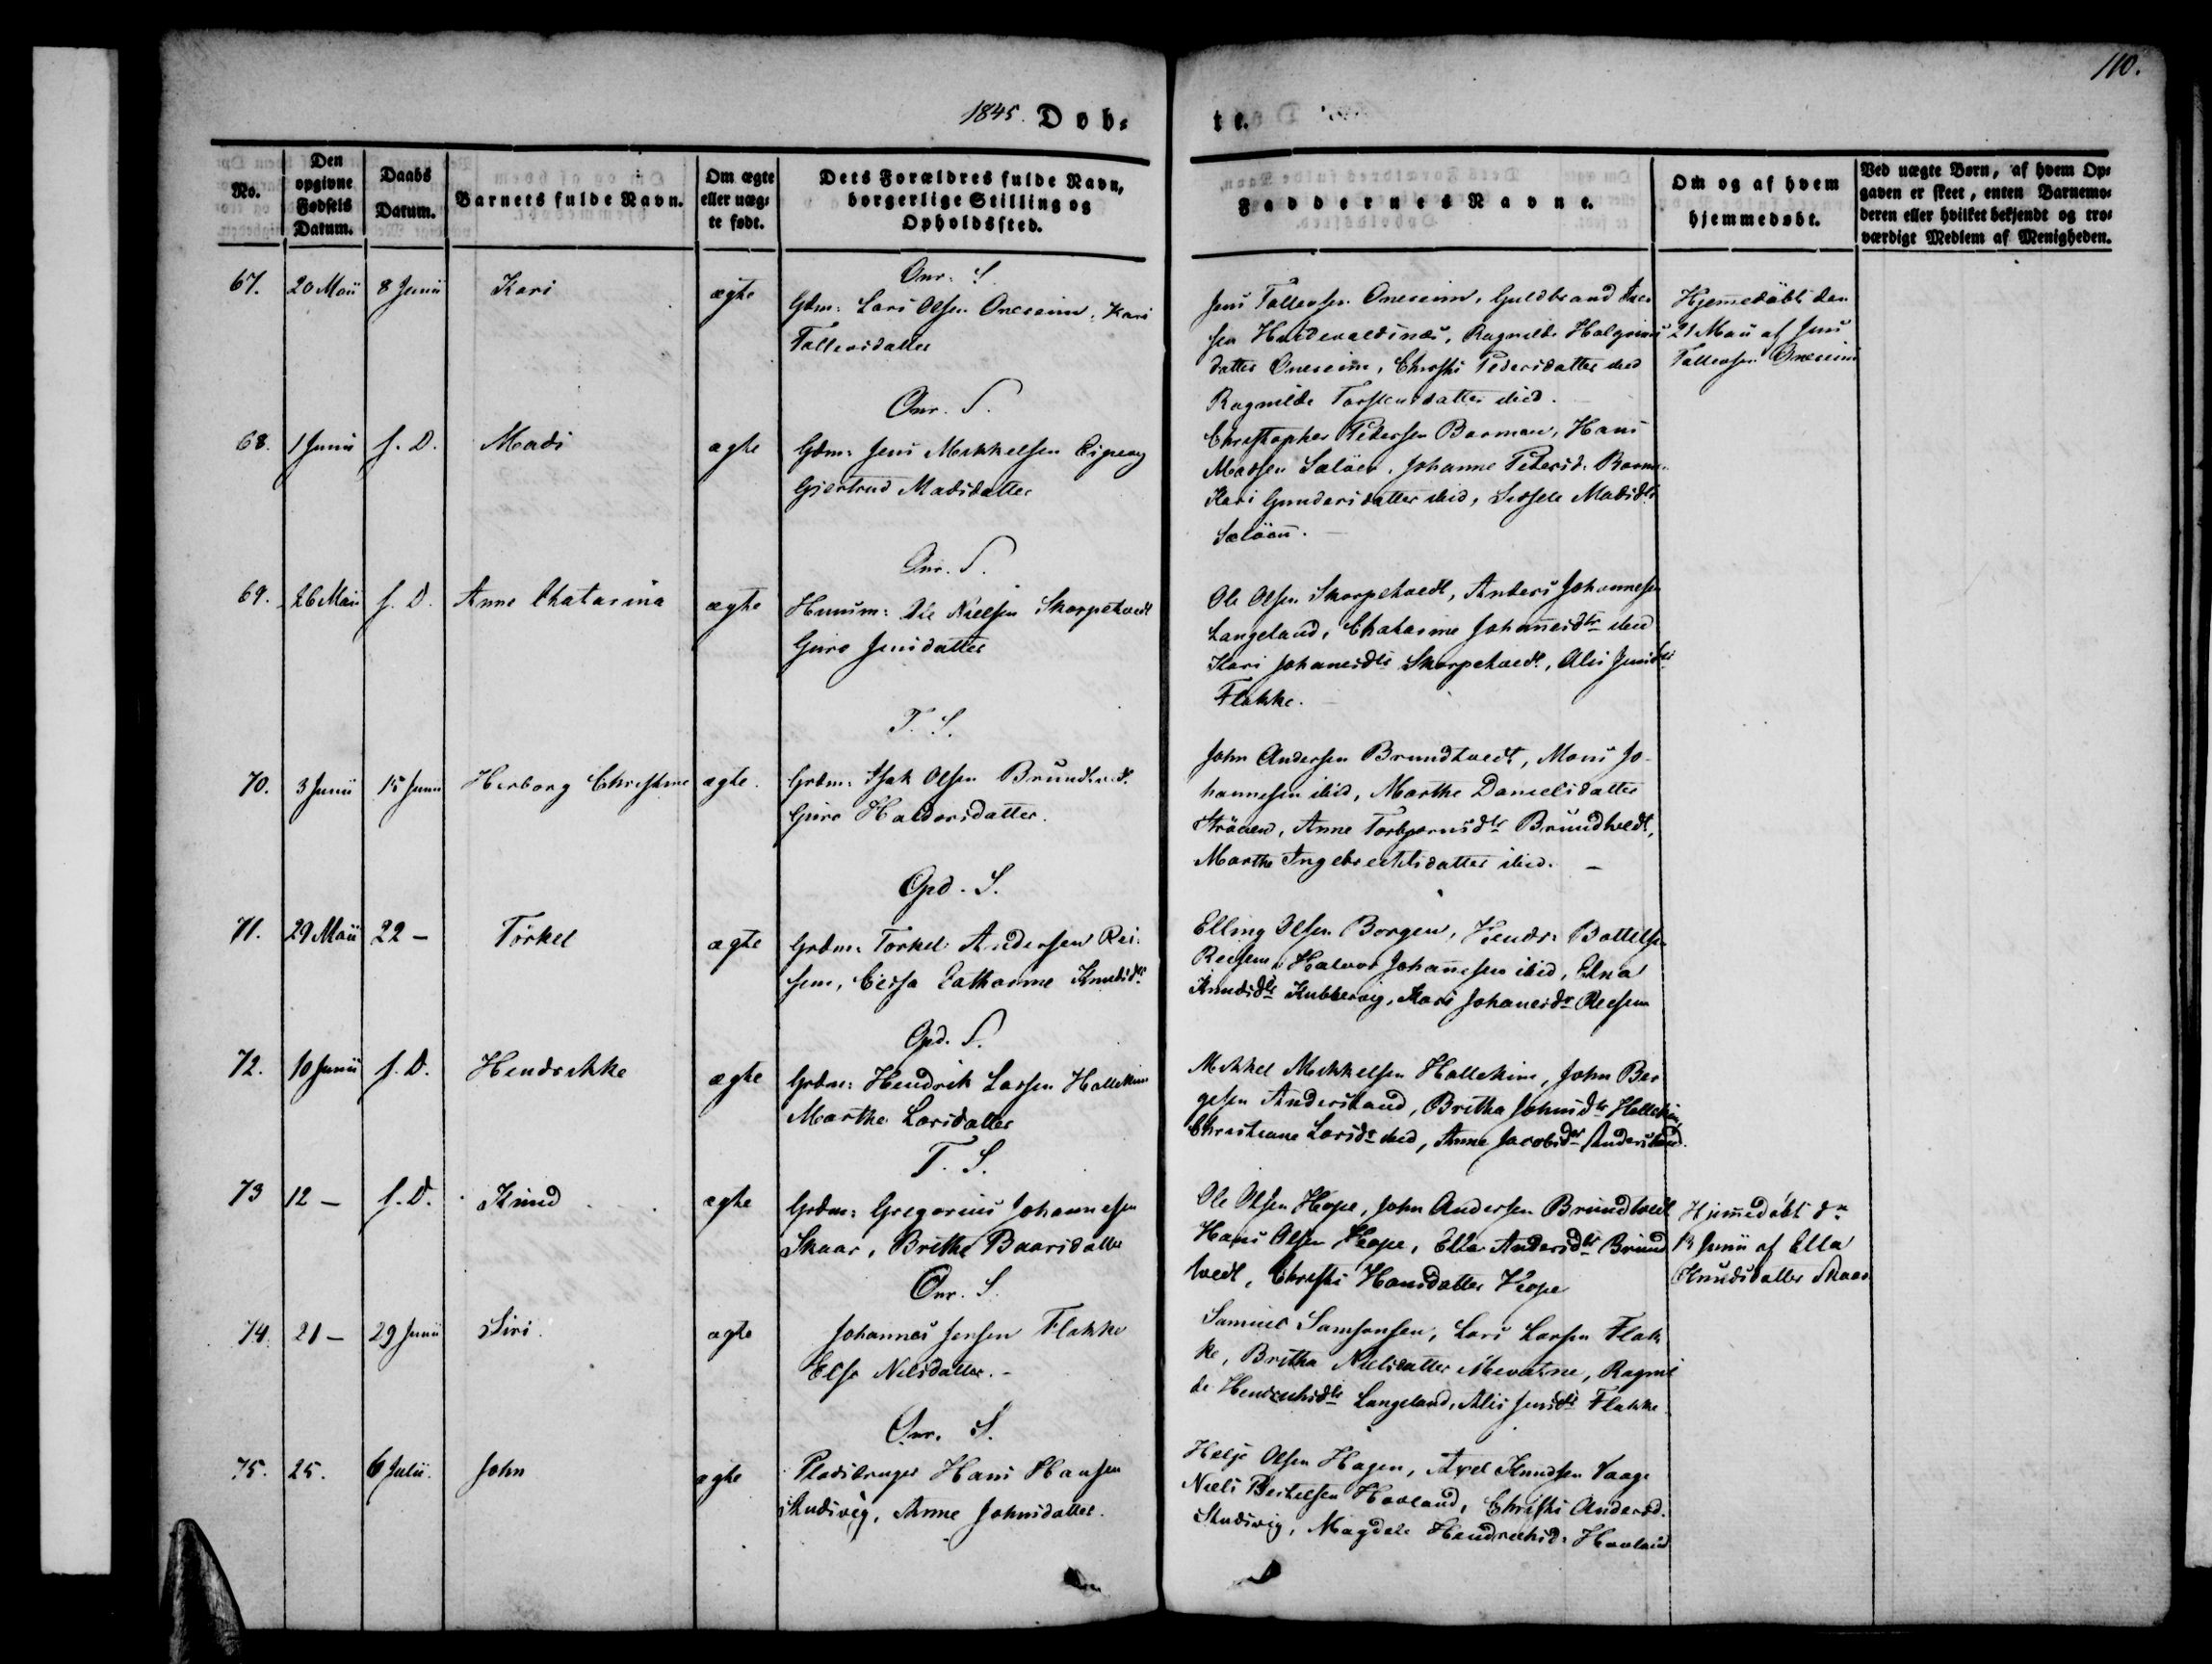 110.
1845. Døb-
te.
No.
Den opgivne Fødsels Datum.
Daabs Datum.
Barnets fulde Navn.
Om ægte eller uæg- te født.
Dets Forældres fulde Navn, borgerlige Stilling og Opholdssted.
Faddernes Navne.
Om og af hvem hjemmedøbt.
Ved uægte Børn, af hvem Op- gaven er skeet, enten Barnemo- deren eller hvilket bekjendt og tro- værdigt Medlem af Menigheden.
Onr. S.
67. 20 Maii 8 Junii Kari ægte Gdm: Lars Olsen Oneseim, Kari
Tollevsdatter
Jens Tollevsen Oneseim, Guldbrand
sen Ragnilde
datter Oneseim, Christi Pedersdatter ibid
Ragnilde Torstensdatter ibid.
Hjemedöbt den
21 Maii af Jens
Tollevsen Oneseim
Onr. S.
68. 1 Junii s. D. Mads ægte Gdm: Jens Mikkelsen
Gjertrud Madsdatter
Christopher Pedersen Barmen, Hans
Madsen Salöen, Johanne Pedersd.
Kari Gundersdatter ibid, Madsdtr
Salöen.
Onr. S.
69. 26 Maii s. D. Anne Chatarina ægte Huusm: Ole Nielsen Skorpetvedt
Guro Jensdatter
Ole Olsen Skorpetvedt, Anders Johannesen
Langeland, Chatarine Johanesdtr ibid
Kari Johanesdtr Skorpetvedt, Alis Jensdtr
Flakke.
T. S.
70. 3 Junii 15 Junii Herborg Christine ægte. Grdm: Isak Olsen Brundtvedt
Guro Haldorsdatter.
John Andersen Brundtvedt, Mons Jo-
hannesen ibid, Marthe Danielsdatter
Strönen, Anne Torbjørnsdtr Brundtvedt,
Marthe Ingebrechtsdatter ibid. –
Opd. S.
71. 29 Maii 22 – Törkel ægte Grdm: Torkel Andersen Rei-
sem, Catharine Knudsdtr
Elling Olsen Borgen, Hendr: Bottelsen
Reisem, Halvor Johanesen ibid, Elna
Knudsdtr Kubbervig, Kari Johanesdtr Reisem
Opd. S.
72. 10 Junii s. D. Hendrikke ægte Grdm: Hendrik Larsen Hallekim
Marthe Larsdatter
Mikkel Mikkelsen Hallekim, John Bør
gesen Andersland, Britha Johnsdtr Hallekim
Christiane Larsdr ibid, Anne Jacobsdr Andersland.
T. S.
73 12 – s. D. Knud ægte Grdm: Gregorius Johannesen
Skaar, Brithe Baarsdatter
Ole Olsen Hope, John Andersen Brundtvedt
Hans Olsen Hope, Ella Andersdtr Brund
tvedt, Christi Hansdatter Hope
Hjemedöbt dn
13 Junii af Ella
Knudsdatter Skaar
Onr. S.
74. 21 – 29 Junii Siri. ægte Johannes Jensen Flakke
Else Nilsdatter. –
Samuel Samsonsen, Lars Larsen Flak
ke, Britha Nilsdatter Mevatne, Ragnil
de Hendrichsdtr Langeland, Alis Jensdtr Flakke
Onr. S.
75. 25. 6 Julii. John ægte Pladsbruger Hans Hansen
Skudsvig, Anne Johnsdatter.
Helje Olsen Hagen, Axel Knudsen Vaage
Niels Bertelsen Havland, Christi Andersd.
Skudsvig, Magdele Hendrichsd: Havland